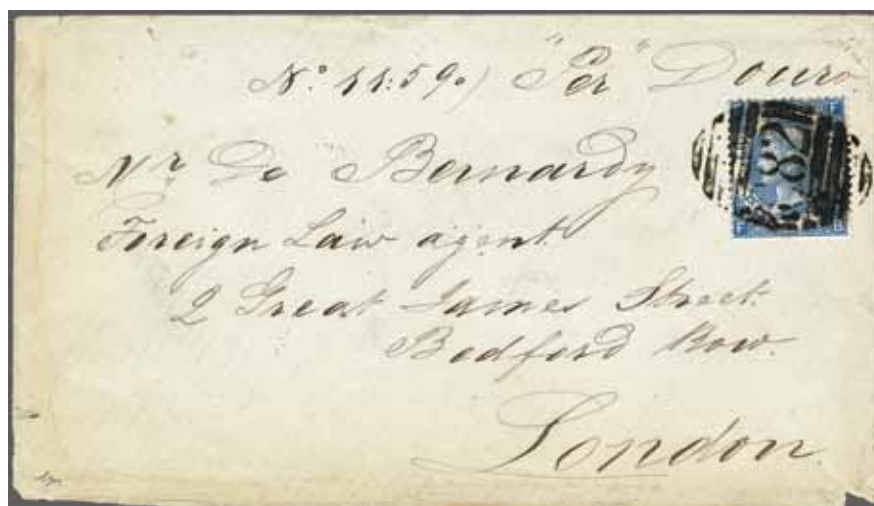 Nº 11:59.) "Per" Douro
Mr De Bernardy
Foreign Law agent.
2 Great James Street.
Bedford Row.
London.
82